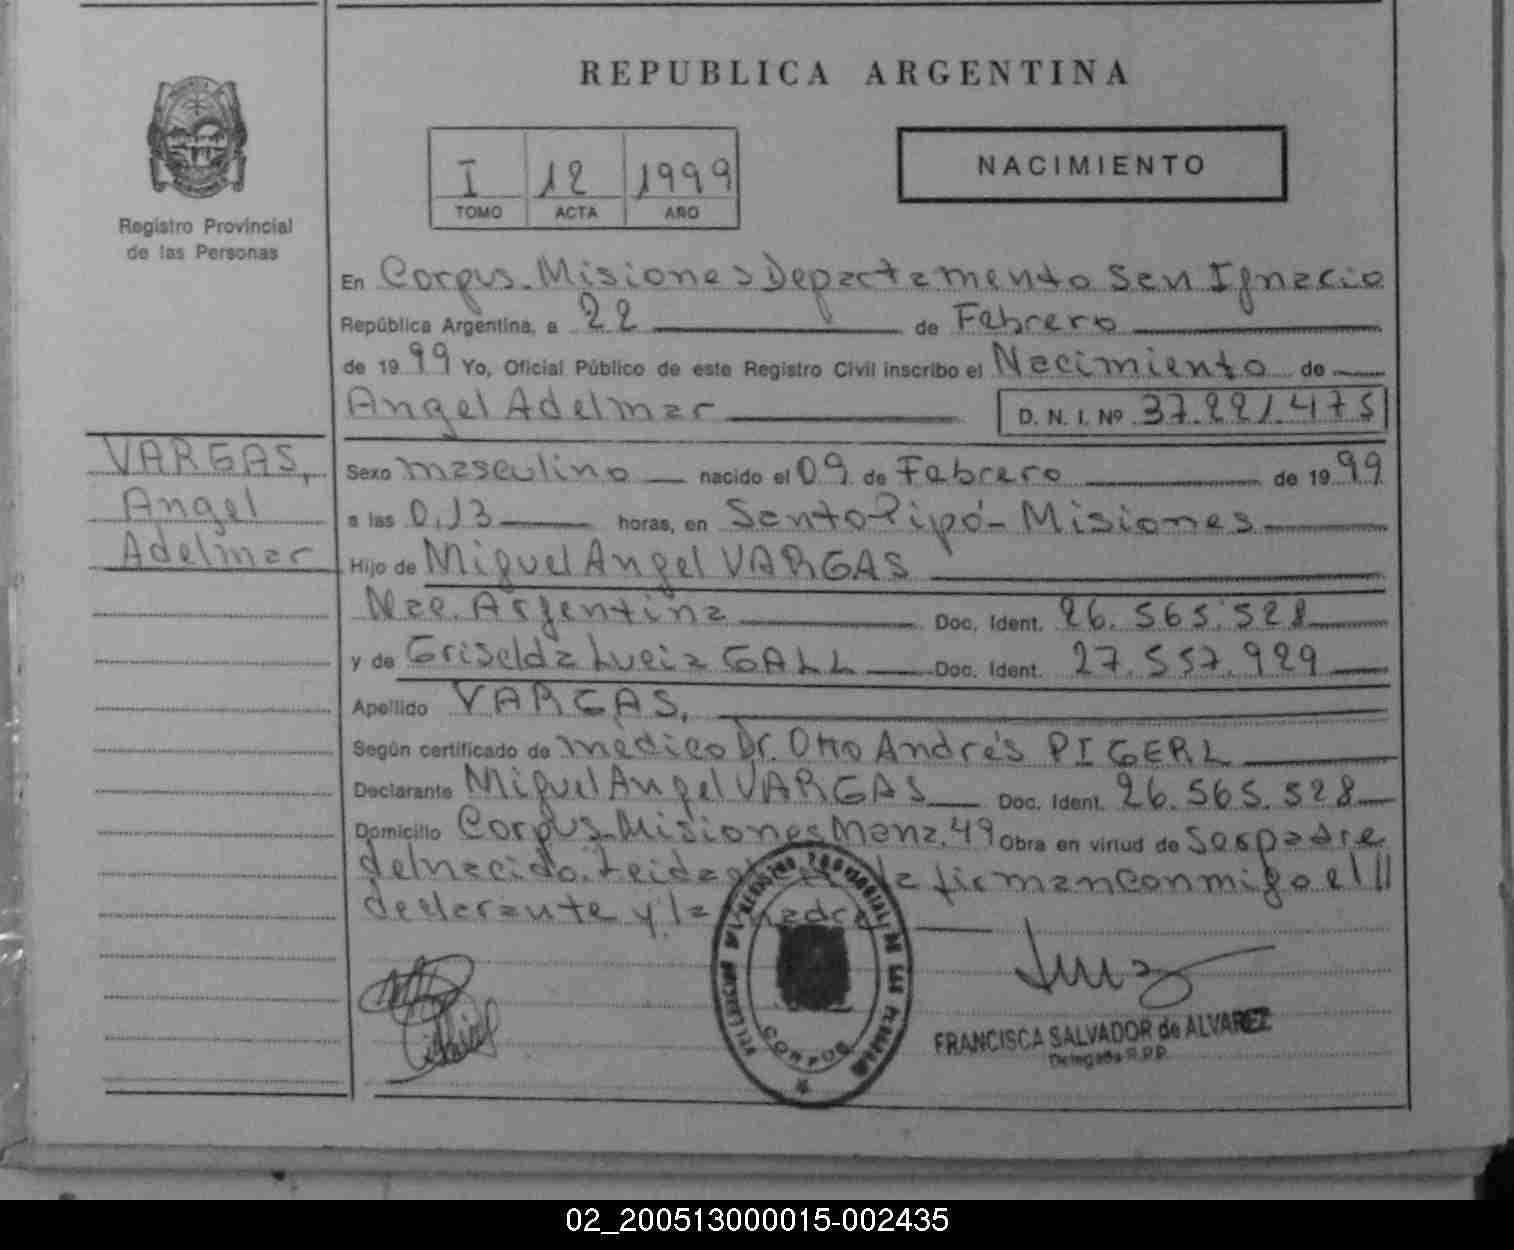 REPUBLICA ARGENTINA
Registro Provincial
de las Personas
I 12 1999
TOMO ACTA AÑO
NACIMIENTO
En Corpus. Misiones Departamento San Ignacio
República Argentina, a 22 de Febrero
de 1999 Yo, Oficial Público de este Registro Civil inscribo el Nacimiento de
Angel Adelmar D. N. I. Nº 37.221.475
VARGAS,
Angel
Adelmar
Sexo masculino nacido el 09 de Febrero de 1999
a las 0,13 horas, en Santo Pipó - Misiones
Hijo de Miguel Angel VARGAS
Nac. Argentina Doc. Ident. 26.565.528
y de Griselda Lucia GALL Doc. Ident. 27.557.929
Apellido VARGAS,
Según certificado de médico Dr. Otto Andrés PIGERL
Declarante Miguel Angel VARGAS Doc. Ident. 26.565.528
Domicilio Corpus Misiones Manz. 49 Obra en virtud de Ser padre
del nacido. Leida firman conmigo el
declarante y la madre
CORPUS
FRANCISCA SALVADOR de ALVAREZ
Delegada R.P.P.
02_200513000015-002435